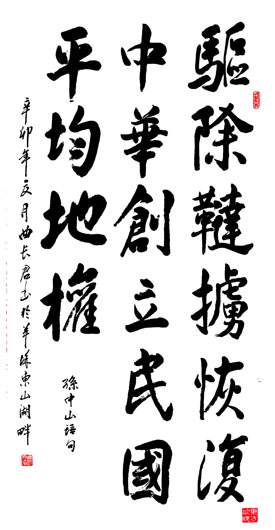 驅除韃擄恢復
中華創立民國
平均地權
孫中山語句
辛卯年文月曲長君書於羊城東山湖畔